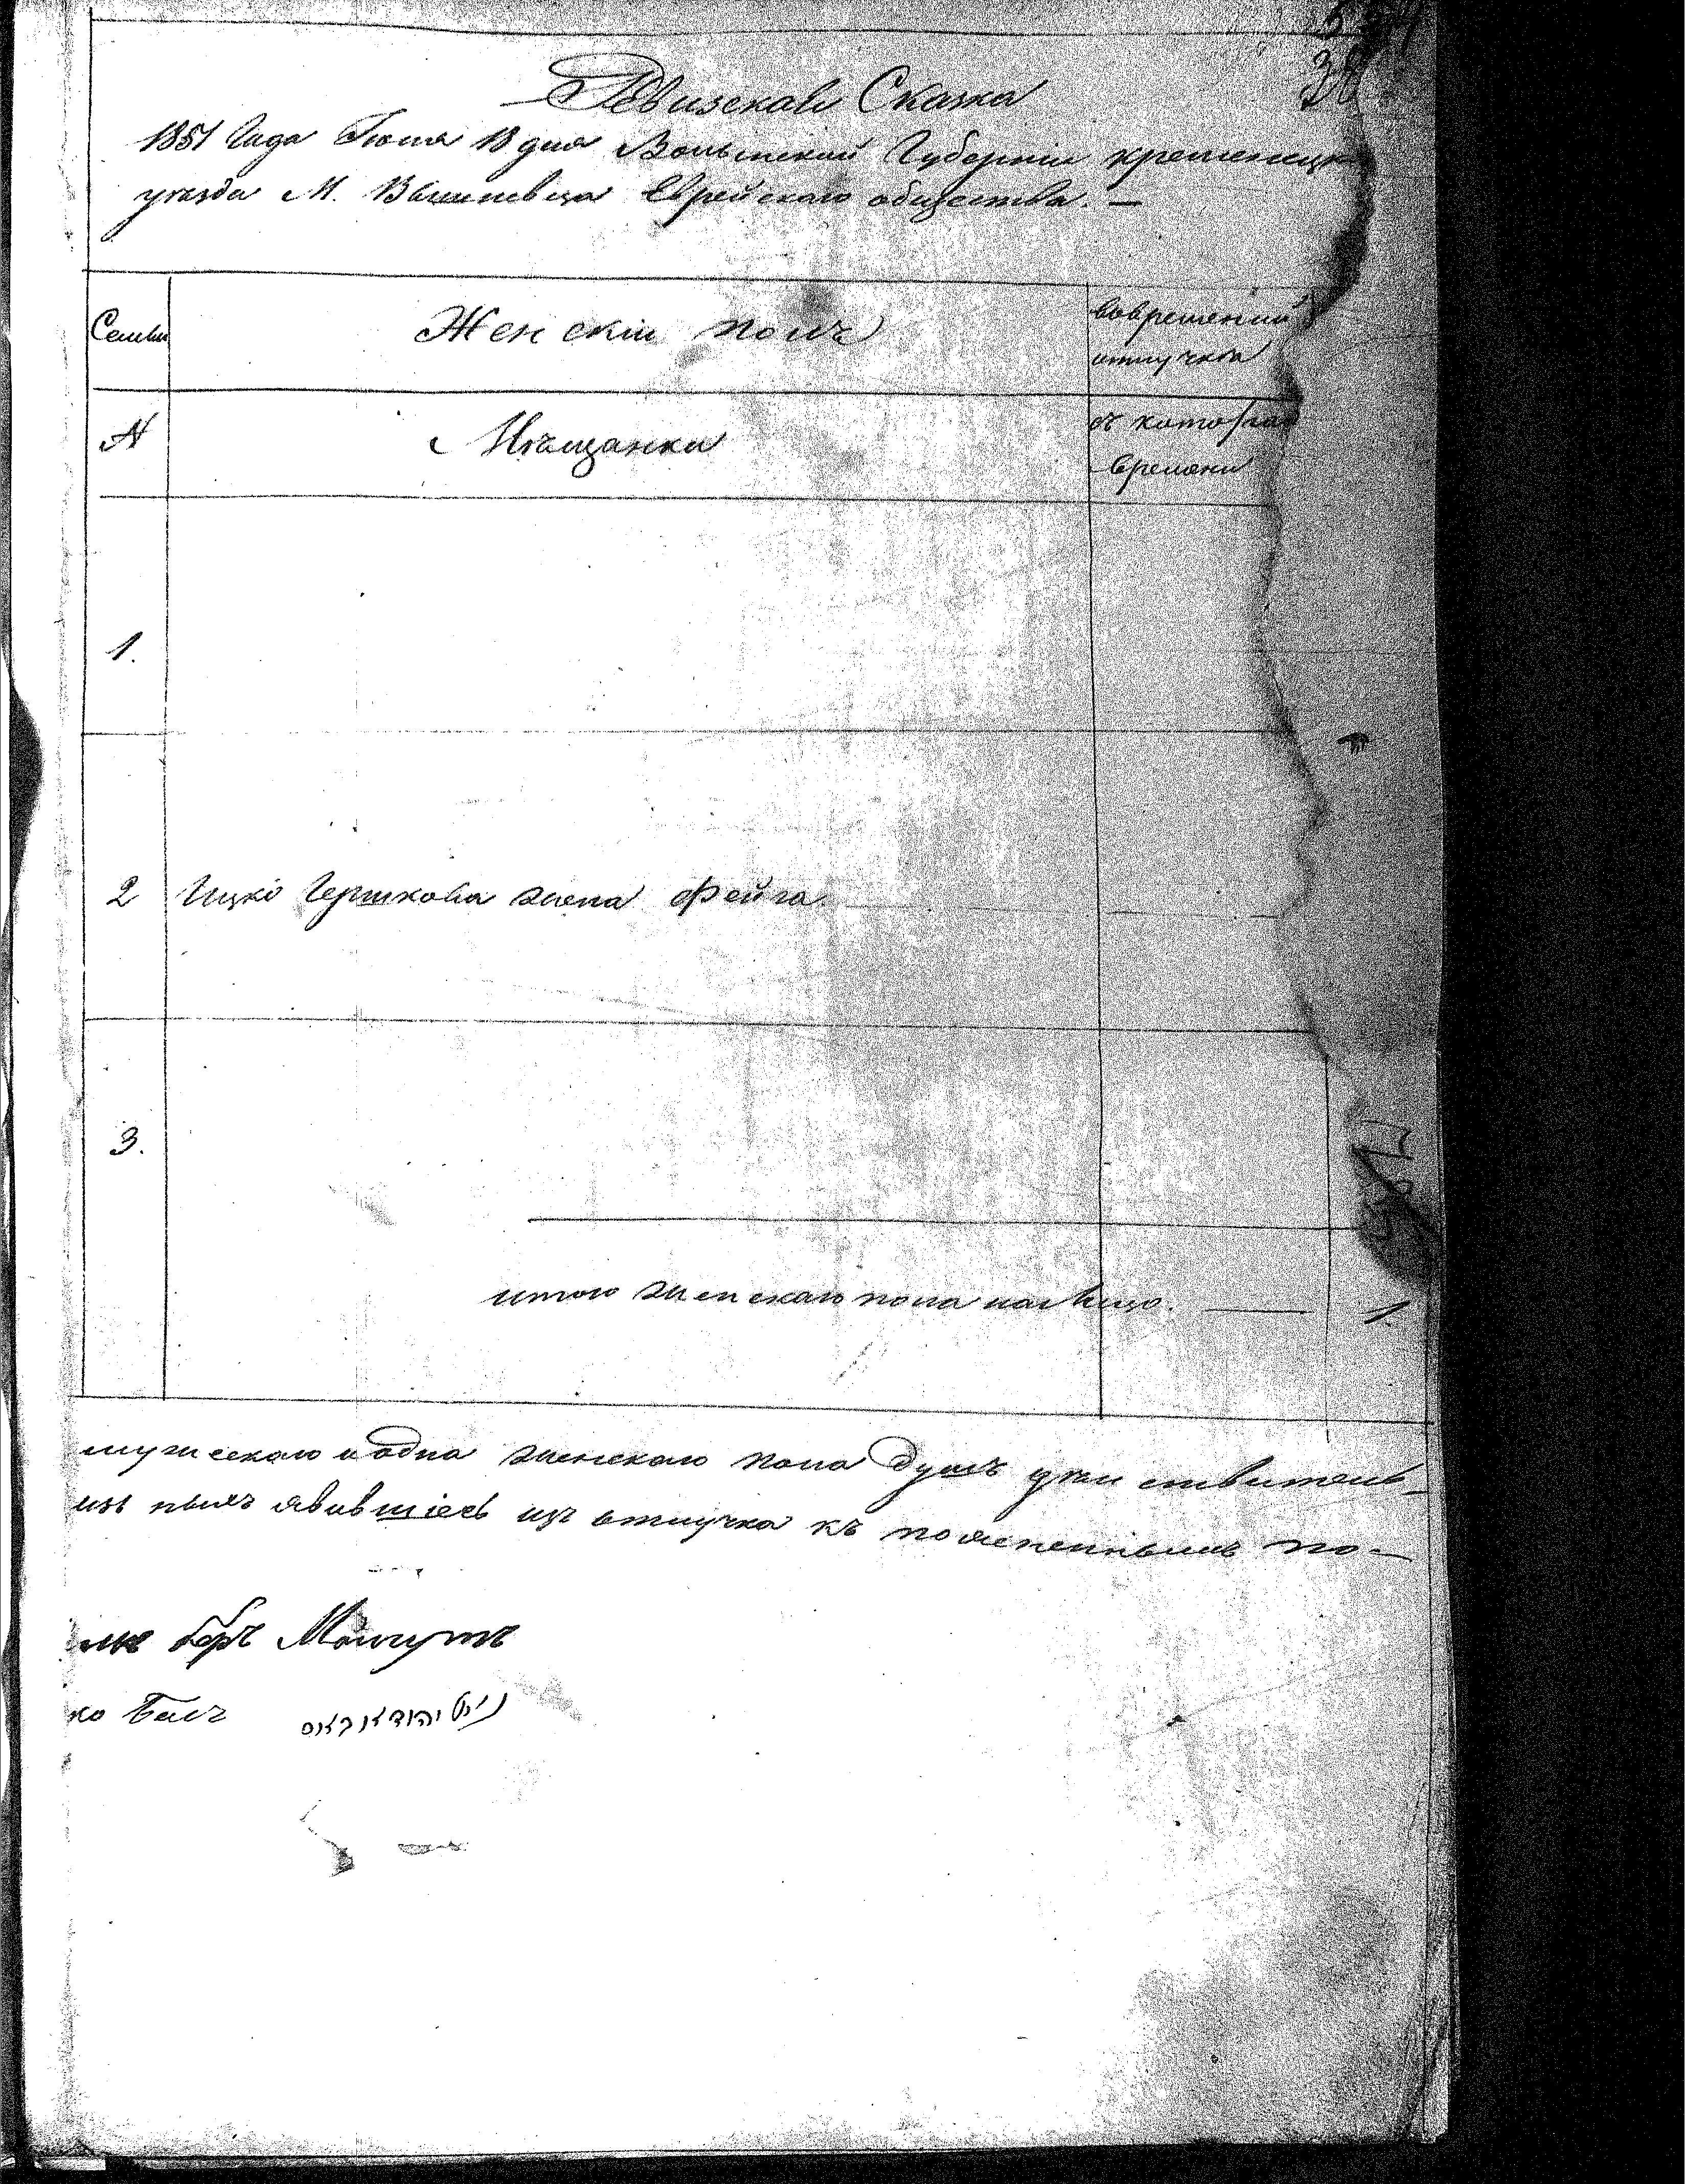 Ревизская Сказка
1851 Года Июня 18 дня Волынской Губерніи кременецк
уезда М. Вишневца Еврейскаго общества. —
Семьи
Женскій полъ
вовременной
отлучке
N
Мѣщанки
съ котораго
времени
1.
2 Ицко Гершкова жена Фейга
3.
итого женскаго пола на лицо. — 1.
мужескаго и одна женскаго пола душъ действитель-
изъ нихъ явившіесь изъ отлучки къ поясненнымъ по-
беръ
ко Басъ